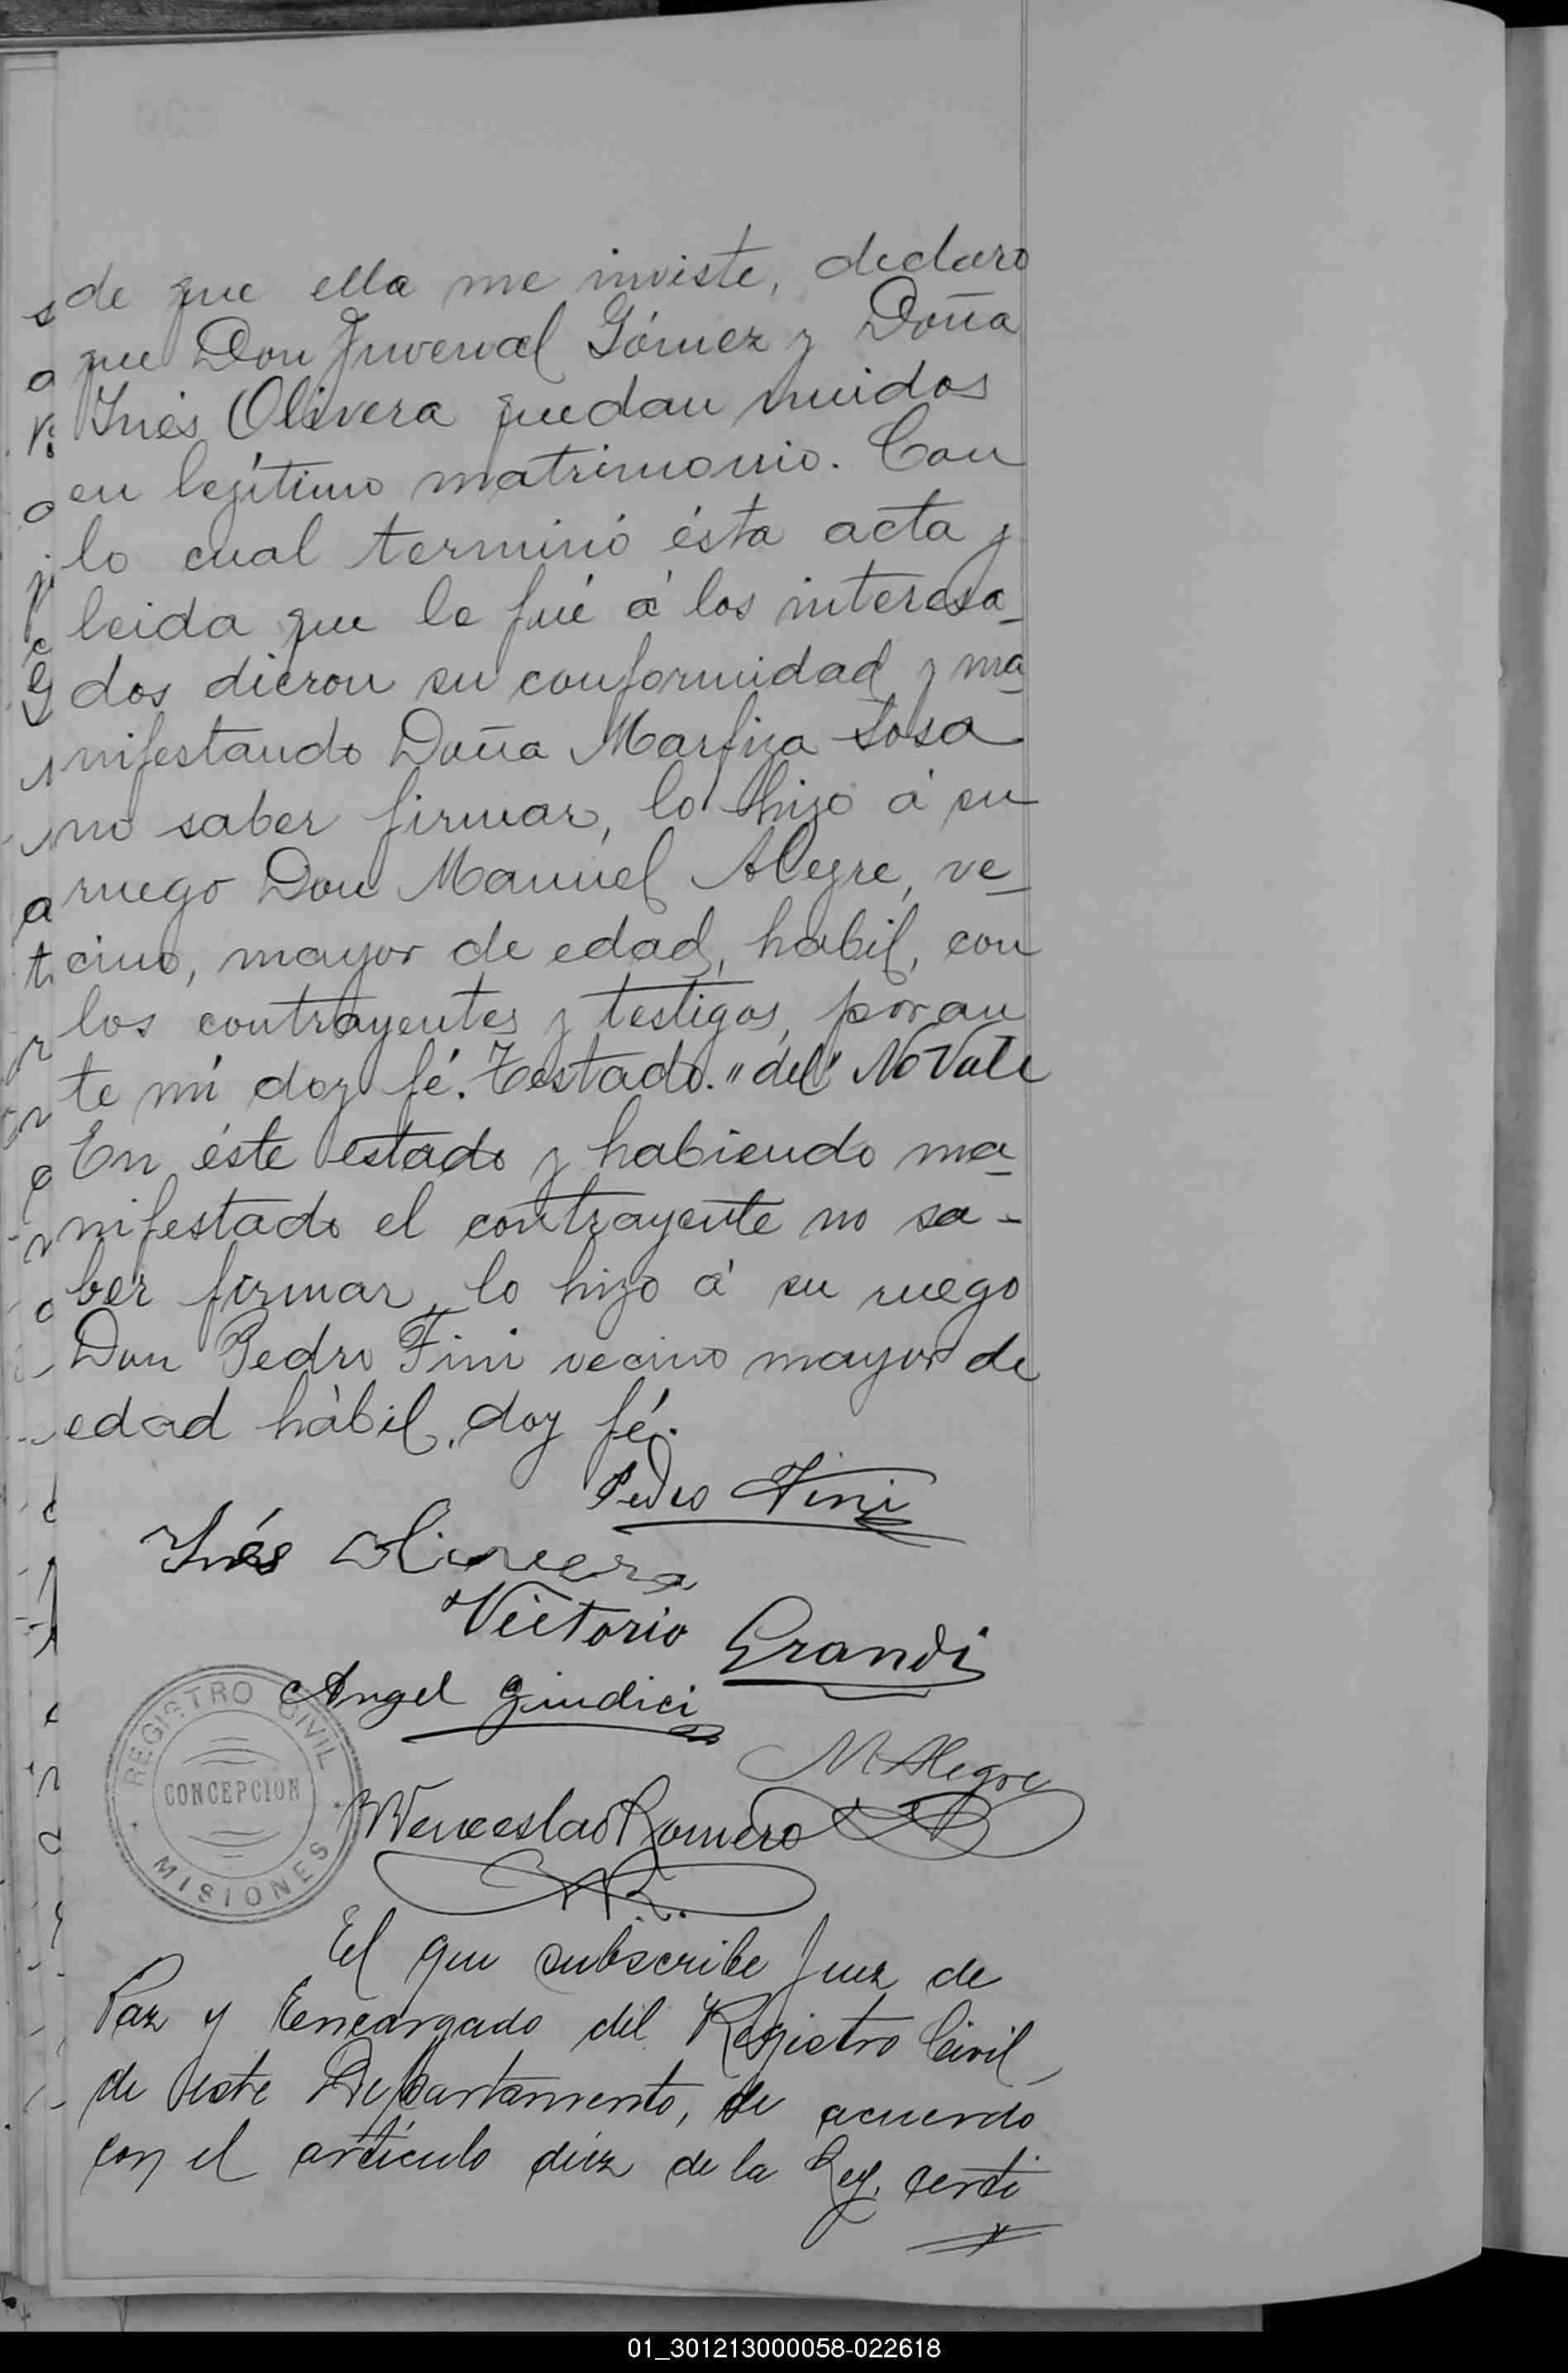 de que ella me inviste, declaro
que Don Juvenal Gómez y Doña
Inés Olivera quedan unidos
en legítimo matrimonio. Con
lo cual terminó ésta acta y
leida que le fué á los interesa-
dos dieron su conformidad y ma-
nifestando Doña Marfiza Sosa
no saber firmar, lo hizo á su
ruego Don Manuel Alegre, ve-
cino, mayor de edad, habil, con
los contrayentes y testigos, por an
te mi doy fé. Testado. "del" No Vale
En éste estado y habiendo ma-
nifestado el contrayente no sa-
ber firmar, lo hizo á su ruego
Don Pedro Fini vecino mayor de
edad hábil, doy fé.
Pedro Fini
Inés Olivera
Victorio Grandi
Angel Giudici
M Alegre
Wenceslao Romero
REGISTRO CIVIL
CONCEPCION
MISIONES
El que subscribe Juez de
Paz y Encargado del Registro Civil
de este Departamento, de acuerdo
con el artículo diez de la Ley, certi
01_301213000058-022618